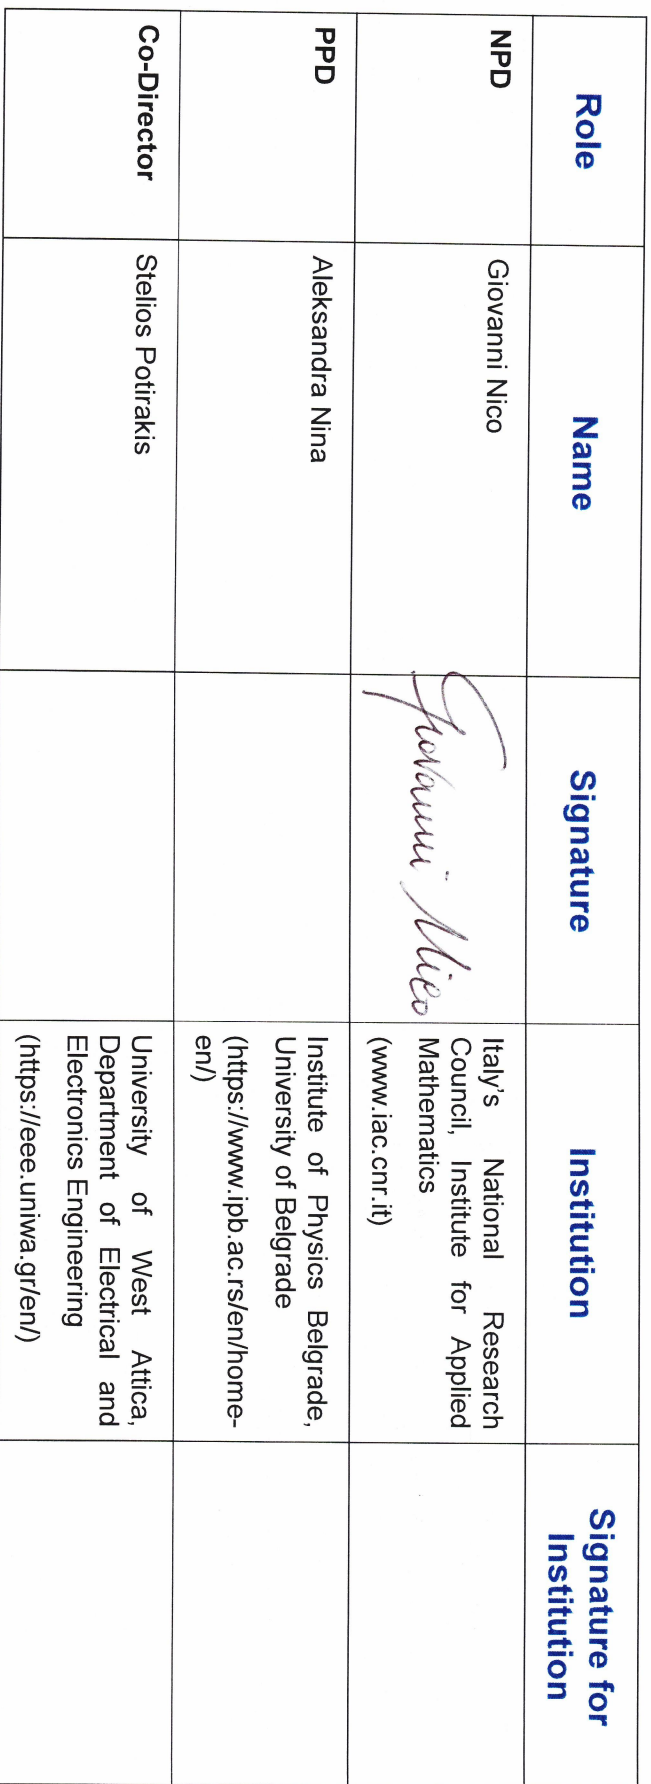 Role Name Signature Institution Signature for
Institution
NPD Giovanni Nico Giovanni Nico Italy's National Research
Council, Institute for Applied
Mathematics
(www.iac.cnr.it)
PPD Aleksandra Nina Institute of Physics Belgrade,
University of Belgrade
(https://www.ipb.ac.rs/en/home-
en/)
Co-Director Stelios Potirakis University of West Attica,
Department of Electrical and
Electronics Engineering
(https://eee.uniwa.gr/en/)